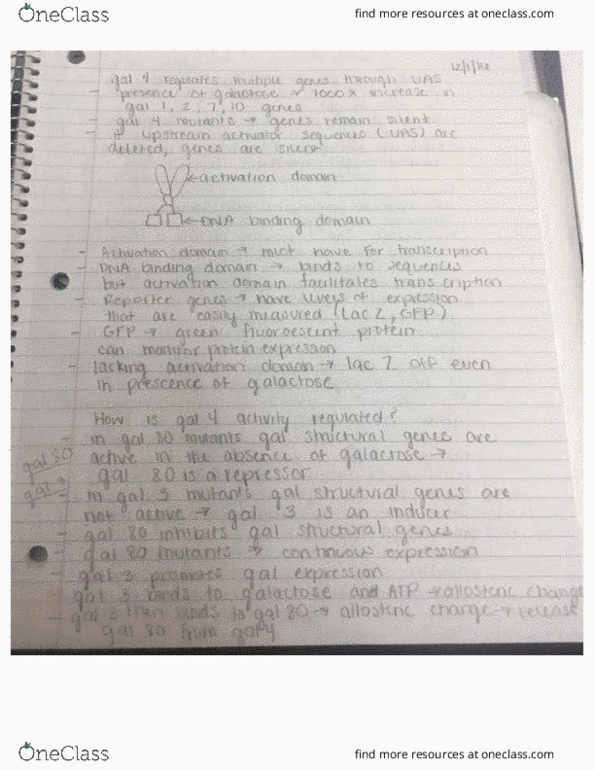 OneClass
find more resources at oneclass.com
gal 4 regulates multiple genes through UAS
presence of galactose → 1000x increase in
gal 1, 2, 7, 10 genes
- gal 4 mutants → genes remain silent
- if upstream activator sequences (UAS) are
deleted, genes are silent
←activation domain
←DNA binding domain
- Activation domain → must have for transcription
- DNA binding domain → binds to sequences
but activation domain facilitates transcription
- Reporter genes → have levels of expression
that are easily measured (Lac Z, GFP)
- GFP → green fluoroescent protein
can monitor protein expression
- lacking activation domain → lac Z off even
in prescence of galactose
How is gal 4 activity regulated?
- in gal 80 mutants gal structural genes are
active in the absence of galactose →
gal 80 is a repressor
gal 80
gal 3
- in gal 3 mutants gal structural genes are
not active → gal 3 is an inducer
- gal 80 inhibits gal structural genes
- gal 80 mutants → continuous expression
- gal 3 promotes gal expression
gal 3 binds to galactose and ATP → allosteric change
- gal 3 then binds to gal 80 → allosteric change → release
gal 80 from gal 4
OneClass
find more resources at oneclass.com